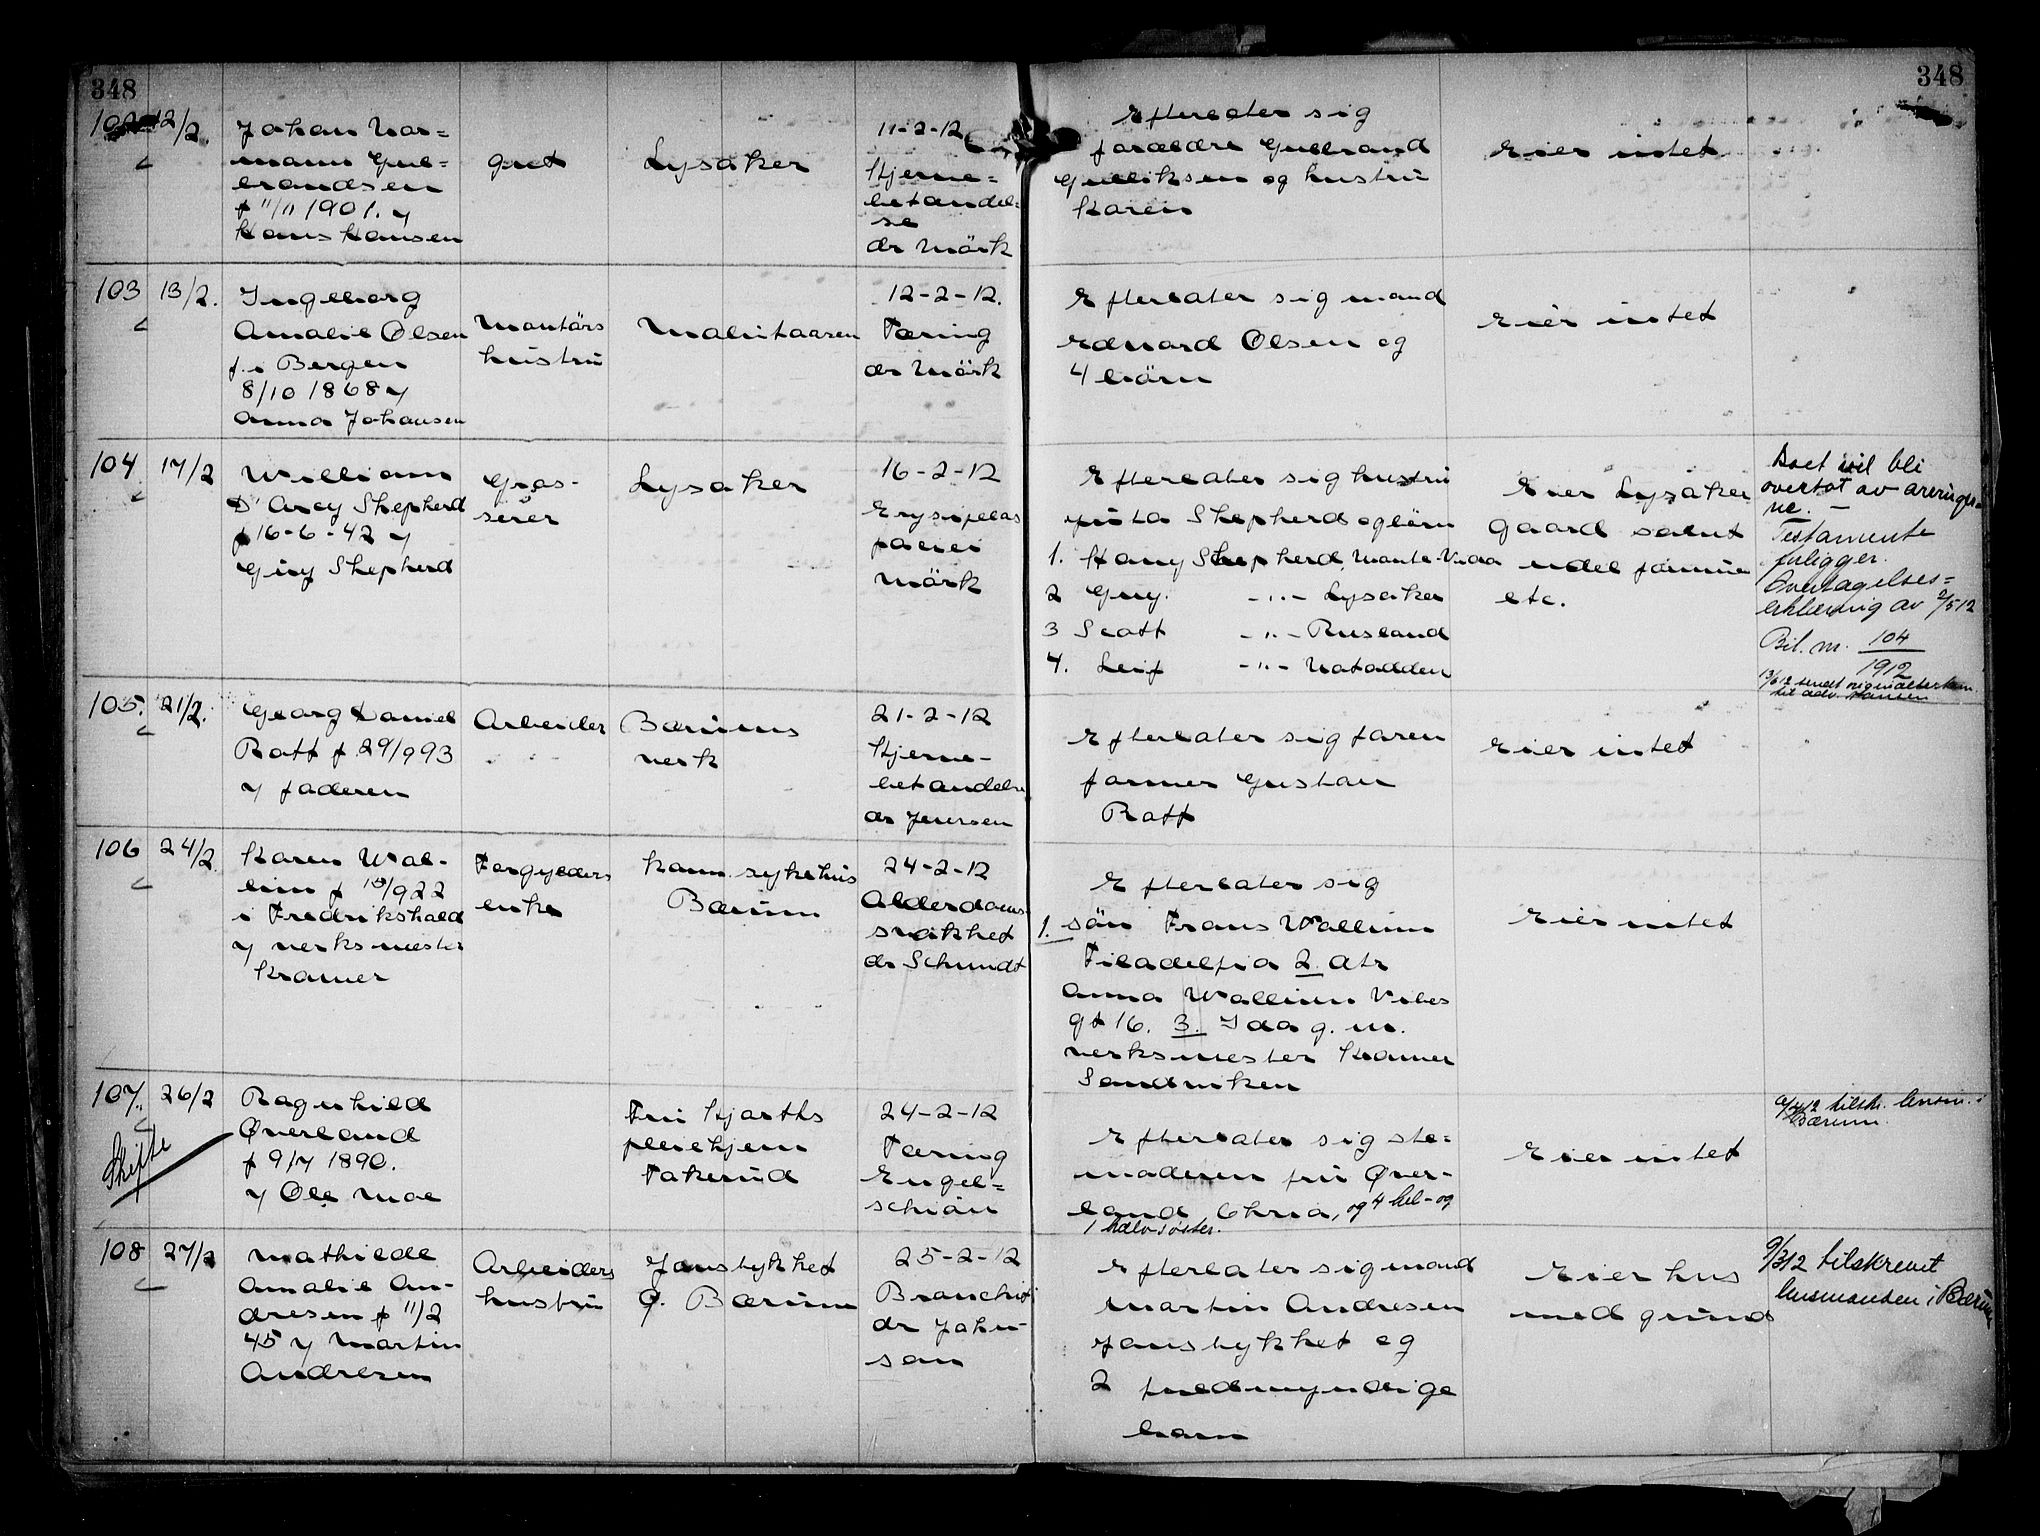 348
348
102 12/2.
Johan Nor=
mann Gul=
brandsen
f 11/11 1901. y
Hans Hansen
gut
Lysaker
11-2-12
Hjerne=
betændel=
se
dr Mörk
Efterlater sig
forældre Gulbrand
Gulliksen og hustru
Karen
Eier intet
103 13/2.
Ingeborg
Amalie Olsen
f. i Bergen
8/10 1868 y
Anna Johansen
Montörs
hustru
12-2-12.
Tæring
dr Mörk
Efterlater sig mand
Edvard Olsen og
4 börn
Eier intet
104 17/2
William
D'Arcy Shepherd
f 16-6-42 y
Guy Shepherd
Gros-
serer
Lysaker
16-2-12
Erysipelas
faciei
Mörk
Efterlater sig hustru
Shepherd og börn
1. Harry Shepherd,
2 Guy. -"- Lysaker
3 Scott -"- Rusland
4. Leif -"- Notodden
Eier Lysaker
gaard samt
endel formue
etc.
Boet vil bli
overtat av arvinger
ne. -
Testamente
foligger.
Overtagelses=
erklæring av 2/5 12
Bil. nr. 104
1912
13/6 12 sendt originaltestam.
til adv. Hansen
105. 21/2.
Georg Daniel
Ratt f 29/9 93
y faderen
Arbeider
Bærums
verk
21-2-12
Hjerne-
betændelse
dr Jensen
Efterlater sig faren
former Gustav
Ratt
Eier intet
106 24/2.
Karen Wal-
lim f 15/9 22
i Fredrikshald
y verksmester
Kramer
Forgylders
enke
Kom. sykehus
Bærum
24-2-12
Alderdoms
svakhet
dr Schmidt
Efterlater sig
1. sön Frans Wallinn
Filadelfia 2. dtr
Anna Wallinn Vibes
gt 16. 3. Ida g. m.
verksmester Kramer
Sandviken
Eier intet
107. 26/2
Skifte
Ragnhild
Øverland
f 9/7 1890.
y Ole Moe
Fru Hjorths
pleiehjem
Tokerud
24-2-12
Tæring
Engel=
schiön
Efterlater sig ste=
moderen fru Øver-
land, Chria, og 4 hel- og
1 halvsøster.
Eier intet
9/3 12 tilskr. lensm. i
Bærum.
108 27/2
Mathilde
Amalie An-
dresen f 11/2
45 y Martin
Andresen
Arbeiders
hustru
Jonstykket
Ø. Bærum
25-2-12
Bronchit
dr John-
son
Efterlater sig mand
Martin Andresen
Jonstykket og
2 fuldmyndige
barn
Eier hus
med grund
9/3 12 tilskrevet
lensmanden i Bærum